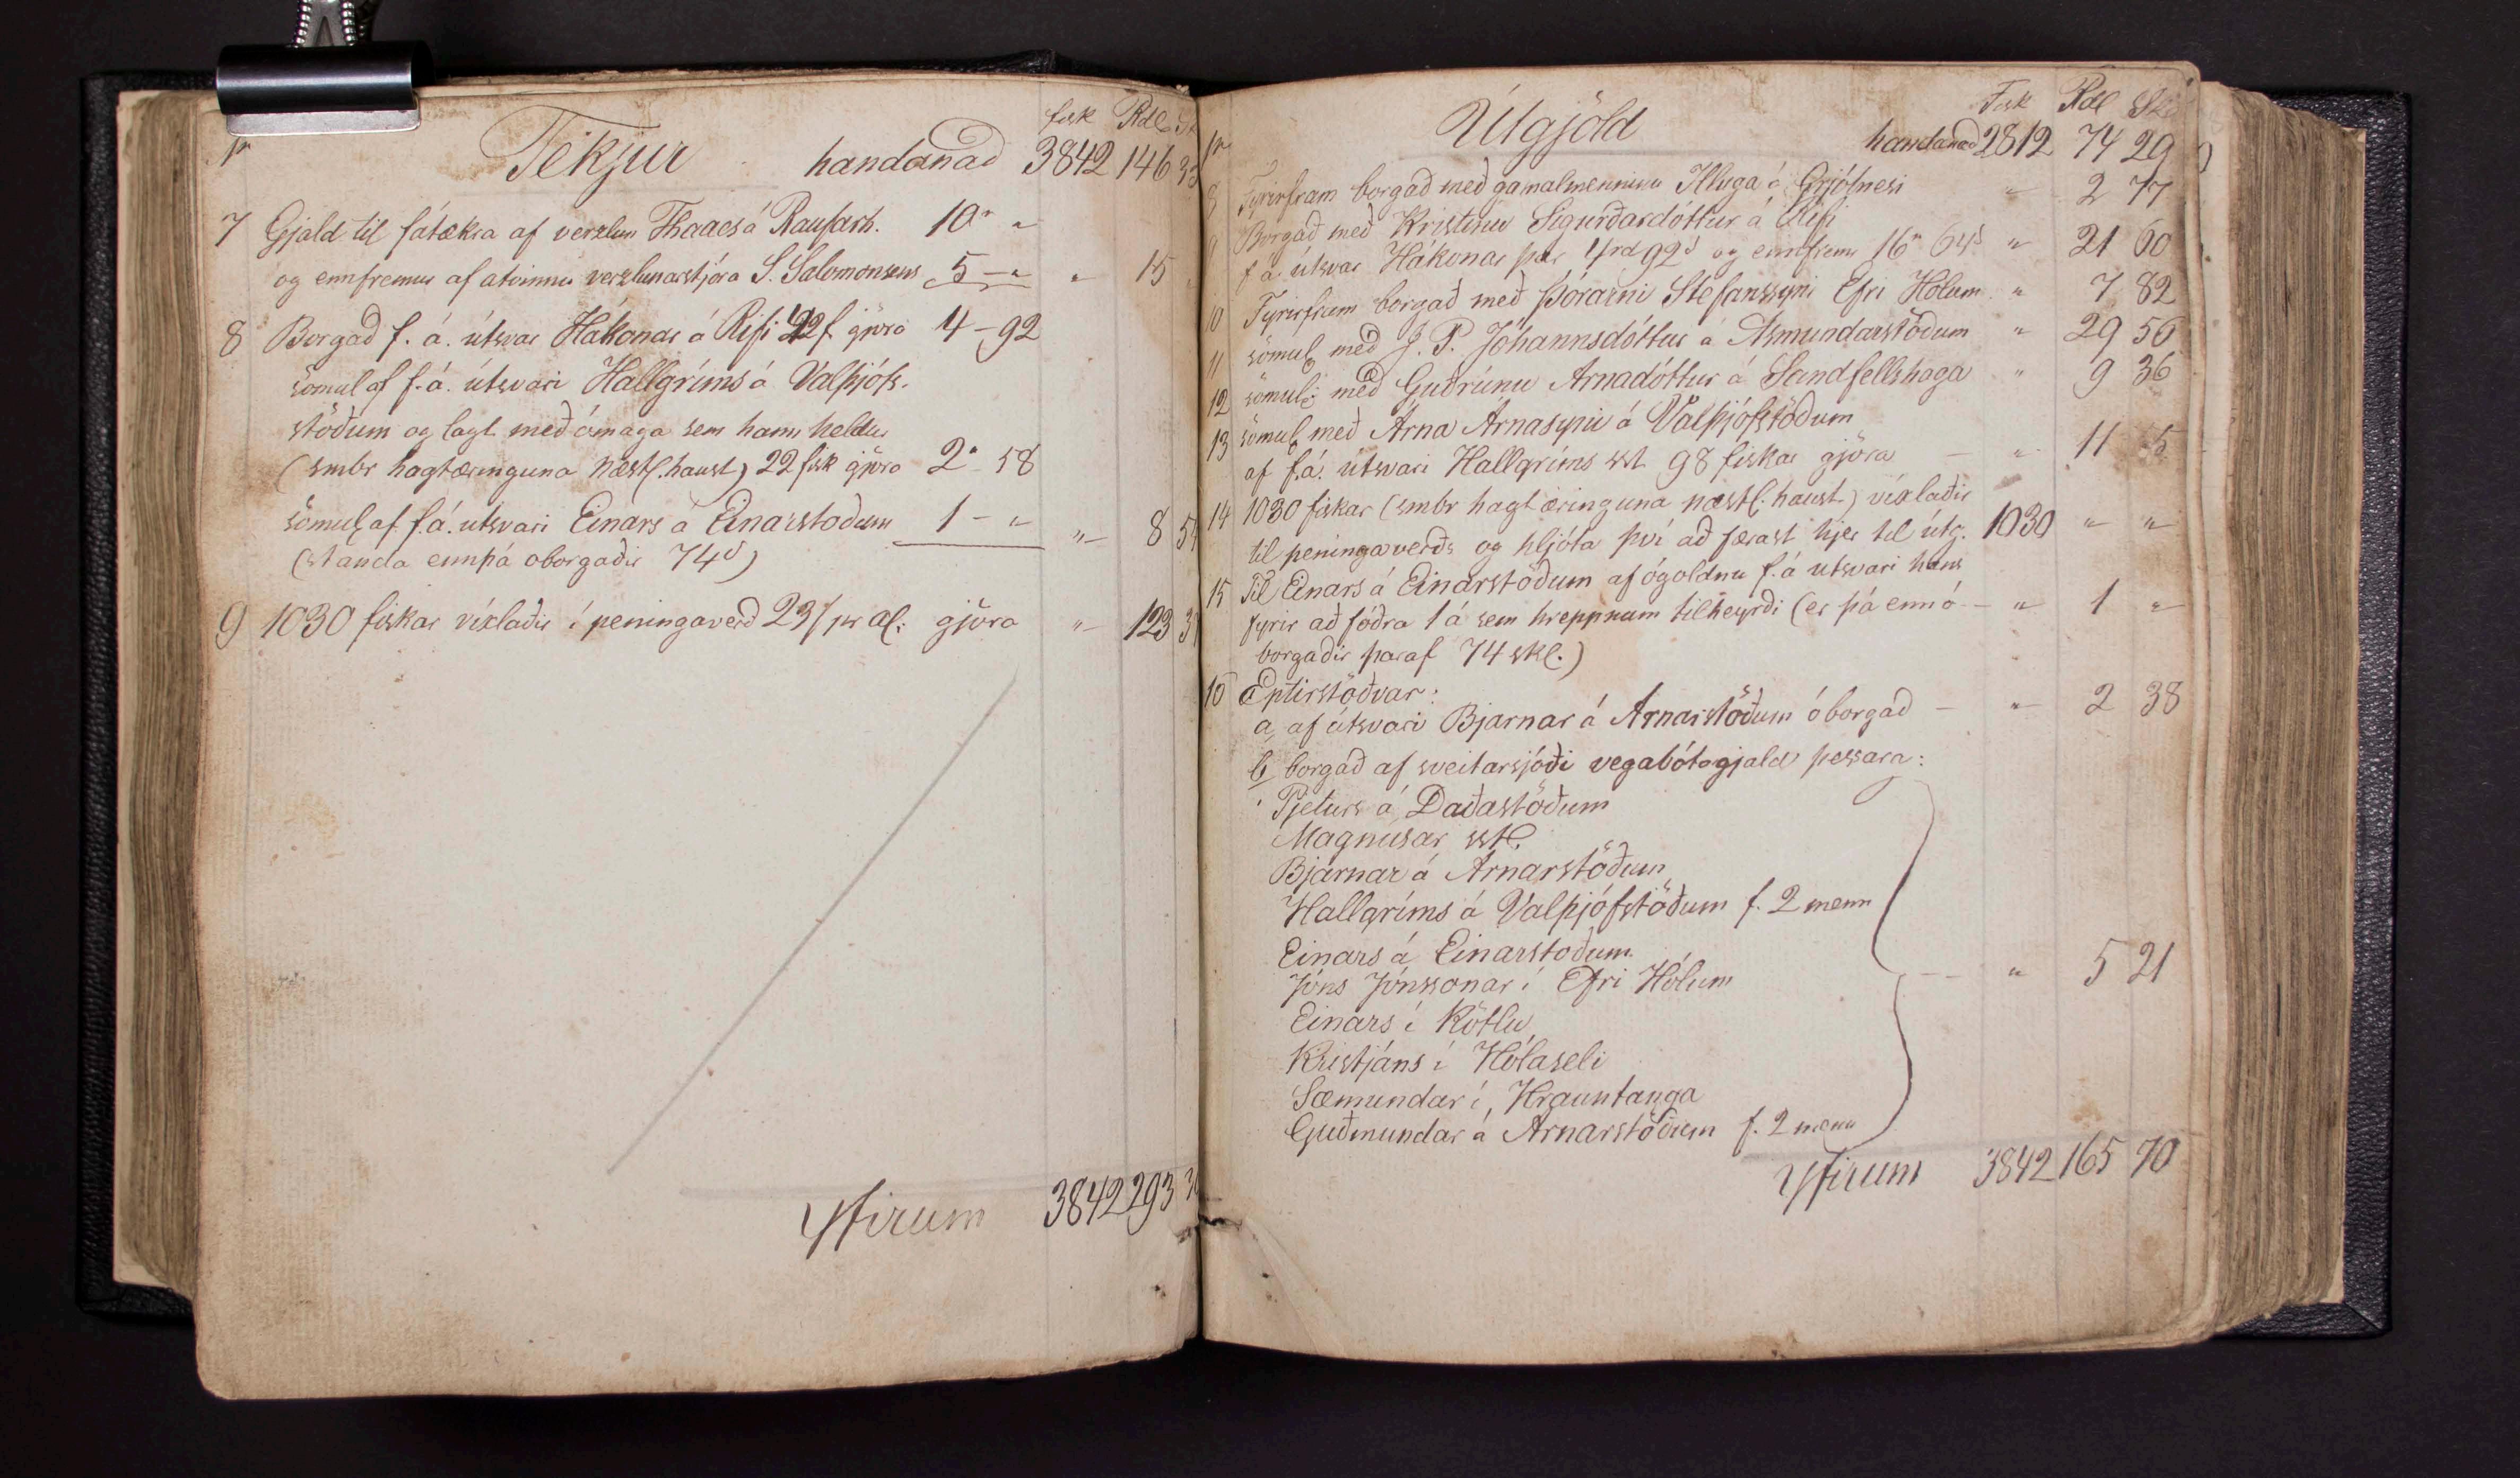 fisk Rdl Sk
Nr Tekjur handanað 3842 146 33
7 Gjald til fátækra af verzlun Thaaes á Raufarh. 10 " "
og ennfremur af atvinnu verzlunarstjóra S. Salomonsens 5 — " " 15
8 Borgað f. á. útsvar Hákonar á Rifi 42 f. gjöra 4 — 92
sömul af f. á. útsvari Hallgríms á Valþjófs-
stöðum og lagt með ómaga sem hann heldur
(smbr hagtæringuna næstl. haust) 22 fisk gjöra 2 " 58
sömul. af f. á. útsvari Einars á Einarstoðum 1 — " " 8 54
(standa ennþá oborgaðir 74 s)
9 1030 fiskar víxlaðir í peningaverð 23 / pr al: gjöra " 123 3
Yfirum 3842 293 3
Fisk Rdl Sk
Nr Útgjöld handanað 2812 74 29
8 Fyrirfram borgað með gamalmenninu Illuga á Grjótnesi " 2 77
9 Borgað með Kristínu Sigurðardóttur á Rifi
f á. útsvar Hákonar þar 4rd 92 s og ennfrem 16 " 64 s " 21 60
10 Fyrirfram borgað með Þórarni Stefánssyni Efri Hólum " 7 82
11 sömul með J. P. Jóhannsdóttur á Asmundarstöðum " 29 56
12 sömul: með Guðrúnu Arnadóttur á Sandfellshaga " 9 36
13 sömul með Árna Árnasyni á Valþjófstöðum
af f. á. útsvari Hallgríms sst 98 fiskar gjöra — " 11 5
14 1030 fiskar (smbr hagtæringuna næstl. haust.) víxlaðir
til peningaverðs og hljóta því að færast hjer til útg. 1030 " "
15 Til Einars á Einarstöðum af ógoldnu f. á útsvari hans
fyrir að fóðra 1 á sem hreppnum tilheyrði (er þá enn ó- — " 1 "
borgaðir þaraf 74 skl.)
16 Eptirstöðvar:
a, af útsvari Bjarnar á Arnarstöðum óborgað — " 2 38
b, borgað af sveitarsjóði vegabótagjald þessara:
Pjeturs á Daðastöðum
Magnúsar sst.
Bjarnar á Arnarstöðum
Hallgríms á Valþjófstöðum f. 2 menn
Einars á Einarstoðum
Jóns Jónssonar í Efri Hólum — " 5 21
Einars í Kötlu
Kristjáns í Hólaseli
Sæmundar í, Hrauntanga
Guðmundar á Arnarstöðum f. 2 menn
Yfirum 3842 165 70